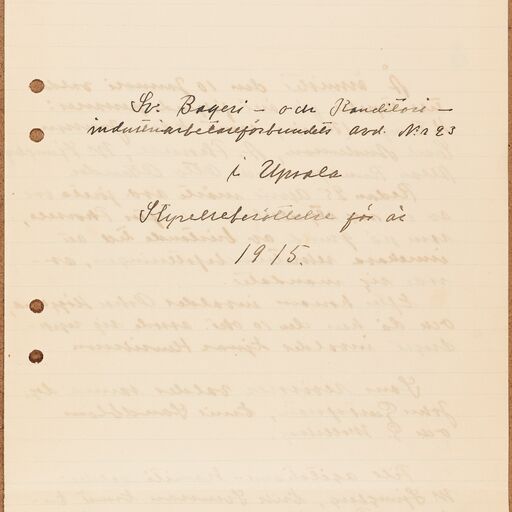 Sv. Bageri- och Konditori-
industriarbetareförbundets avd. No 23
i Upsala
Styrelseberättelse för år
1915.